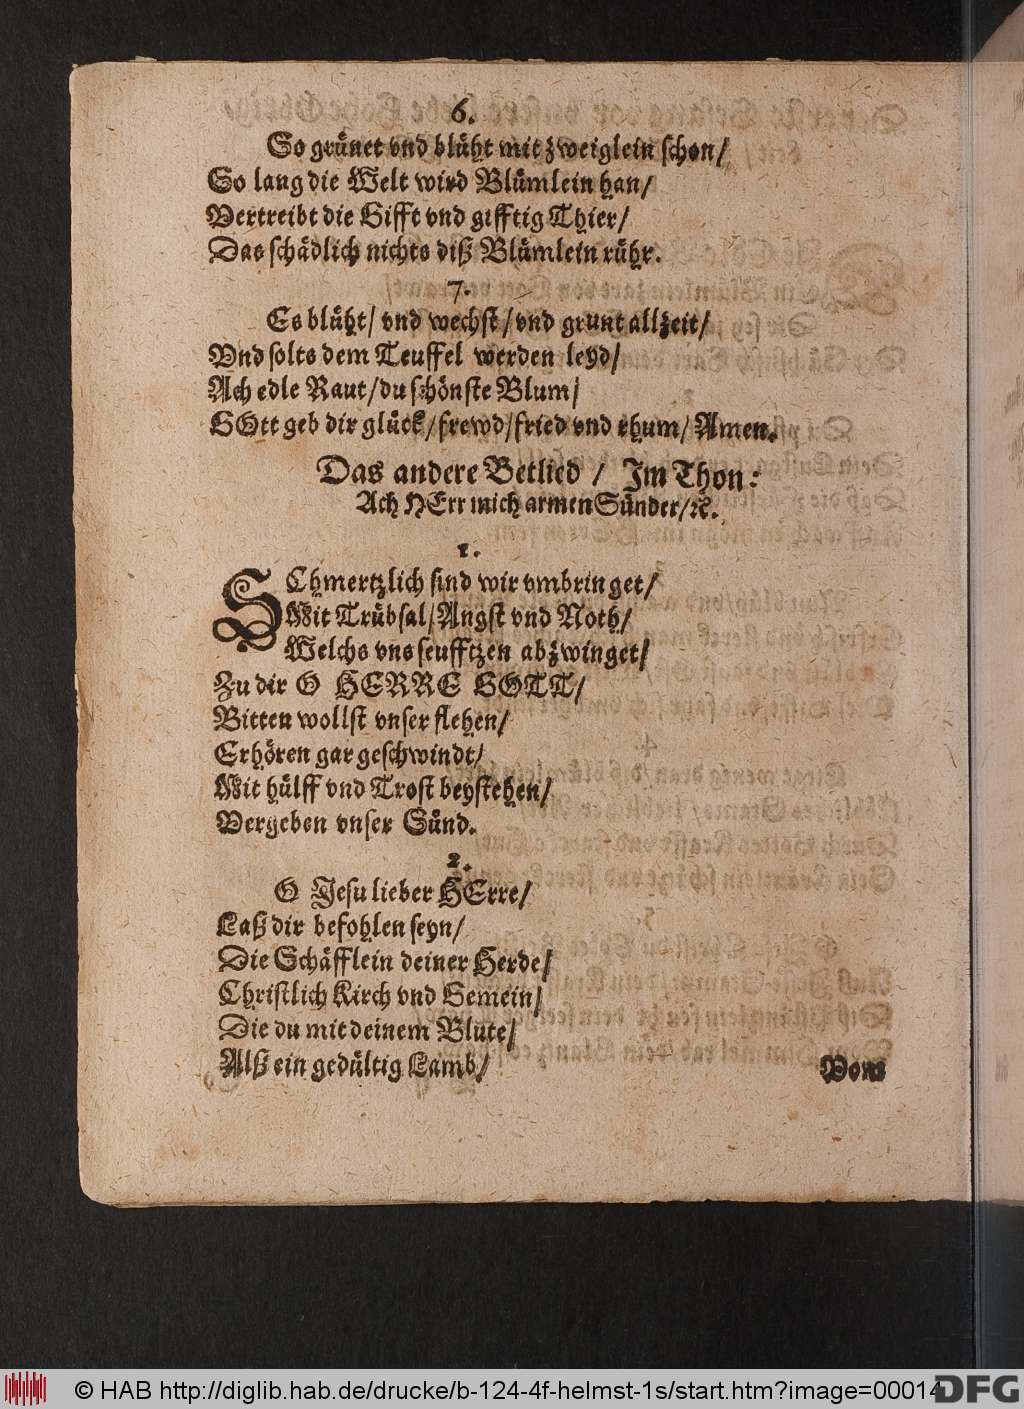 6.
So grünet vnd blüht mit zweiglein schon/
So lang die Welt wird Blümlein han/
Vertreibt die Gifft vnd gifftig Thier/
Das schädlich nichts diß Blümlein rühr.
7.
Es blüht/ vnd wechst/ vnd grunt allzeit/
Vnd solts dem Teuffel werden leyd/
Ach edle Raut/ du schönste Blum/
GOtt geb dir glück/ frewd/ fried vnd rhum/ Amen.
Das andere Betlied / Im Thon:
Ach HErr mich armen Sünder/ ꝛc.
1.
SChmertzlich sind wir vmbringet/
Mit Trübsal/ Angst vnd Noth/
Welchs vns seufftzen abzwinget/
Zu dir O HERRE GOTT/
Bitten wollst vnser flehen/
Erhören gar geschwindt/
Mit hülff vnd Trost beystehen/
Vergeben vnser Sünd.
2.
O Jesu lieber HErre/
Laß dir befohlen seyn/
Die Schäfflein deiner Herde/
Christlich Kirch vnd Gemein/
Die du mit deinem Blute/
Alß ein gedültig Lamb/
Vom
© HAB http://diglib.hab.de/drucke/b-124-4f-helmst-1s/start.htm?image=00014
DFG